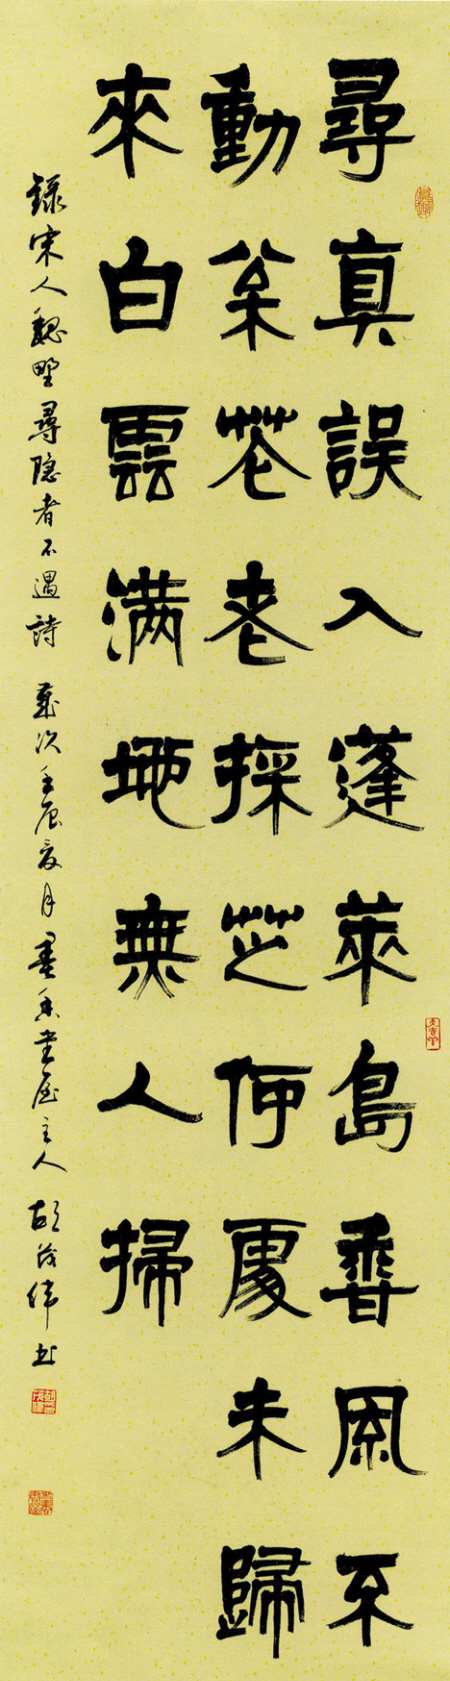 尋真誤入蓬萊島香風不
動松花老採芝何處未歸
來白雲滿地無人掃
錄宋人魏野尋隐者不遇詩 歲次壬辰夏月墨香書屋主人 胡茂偉书